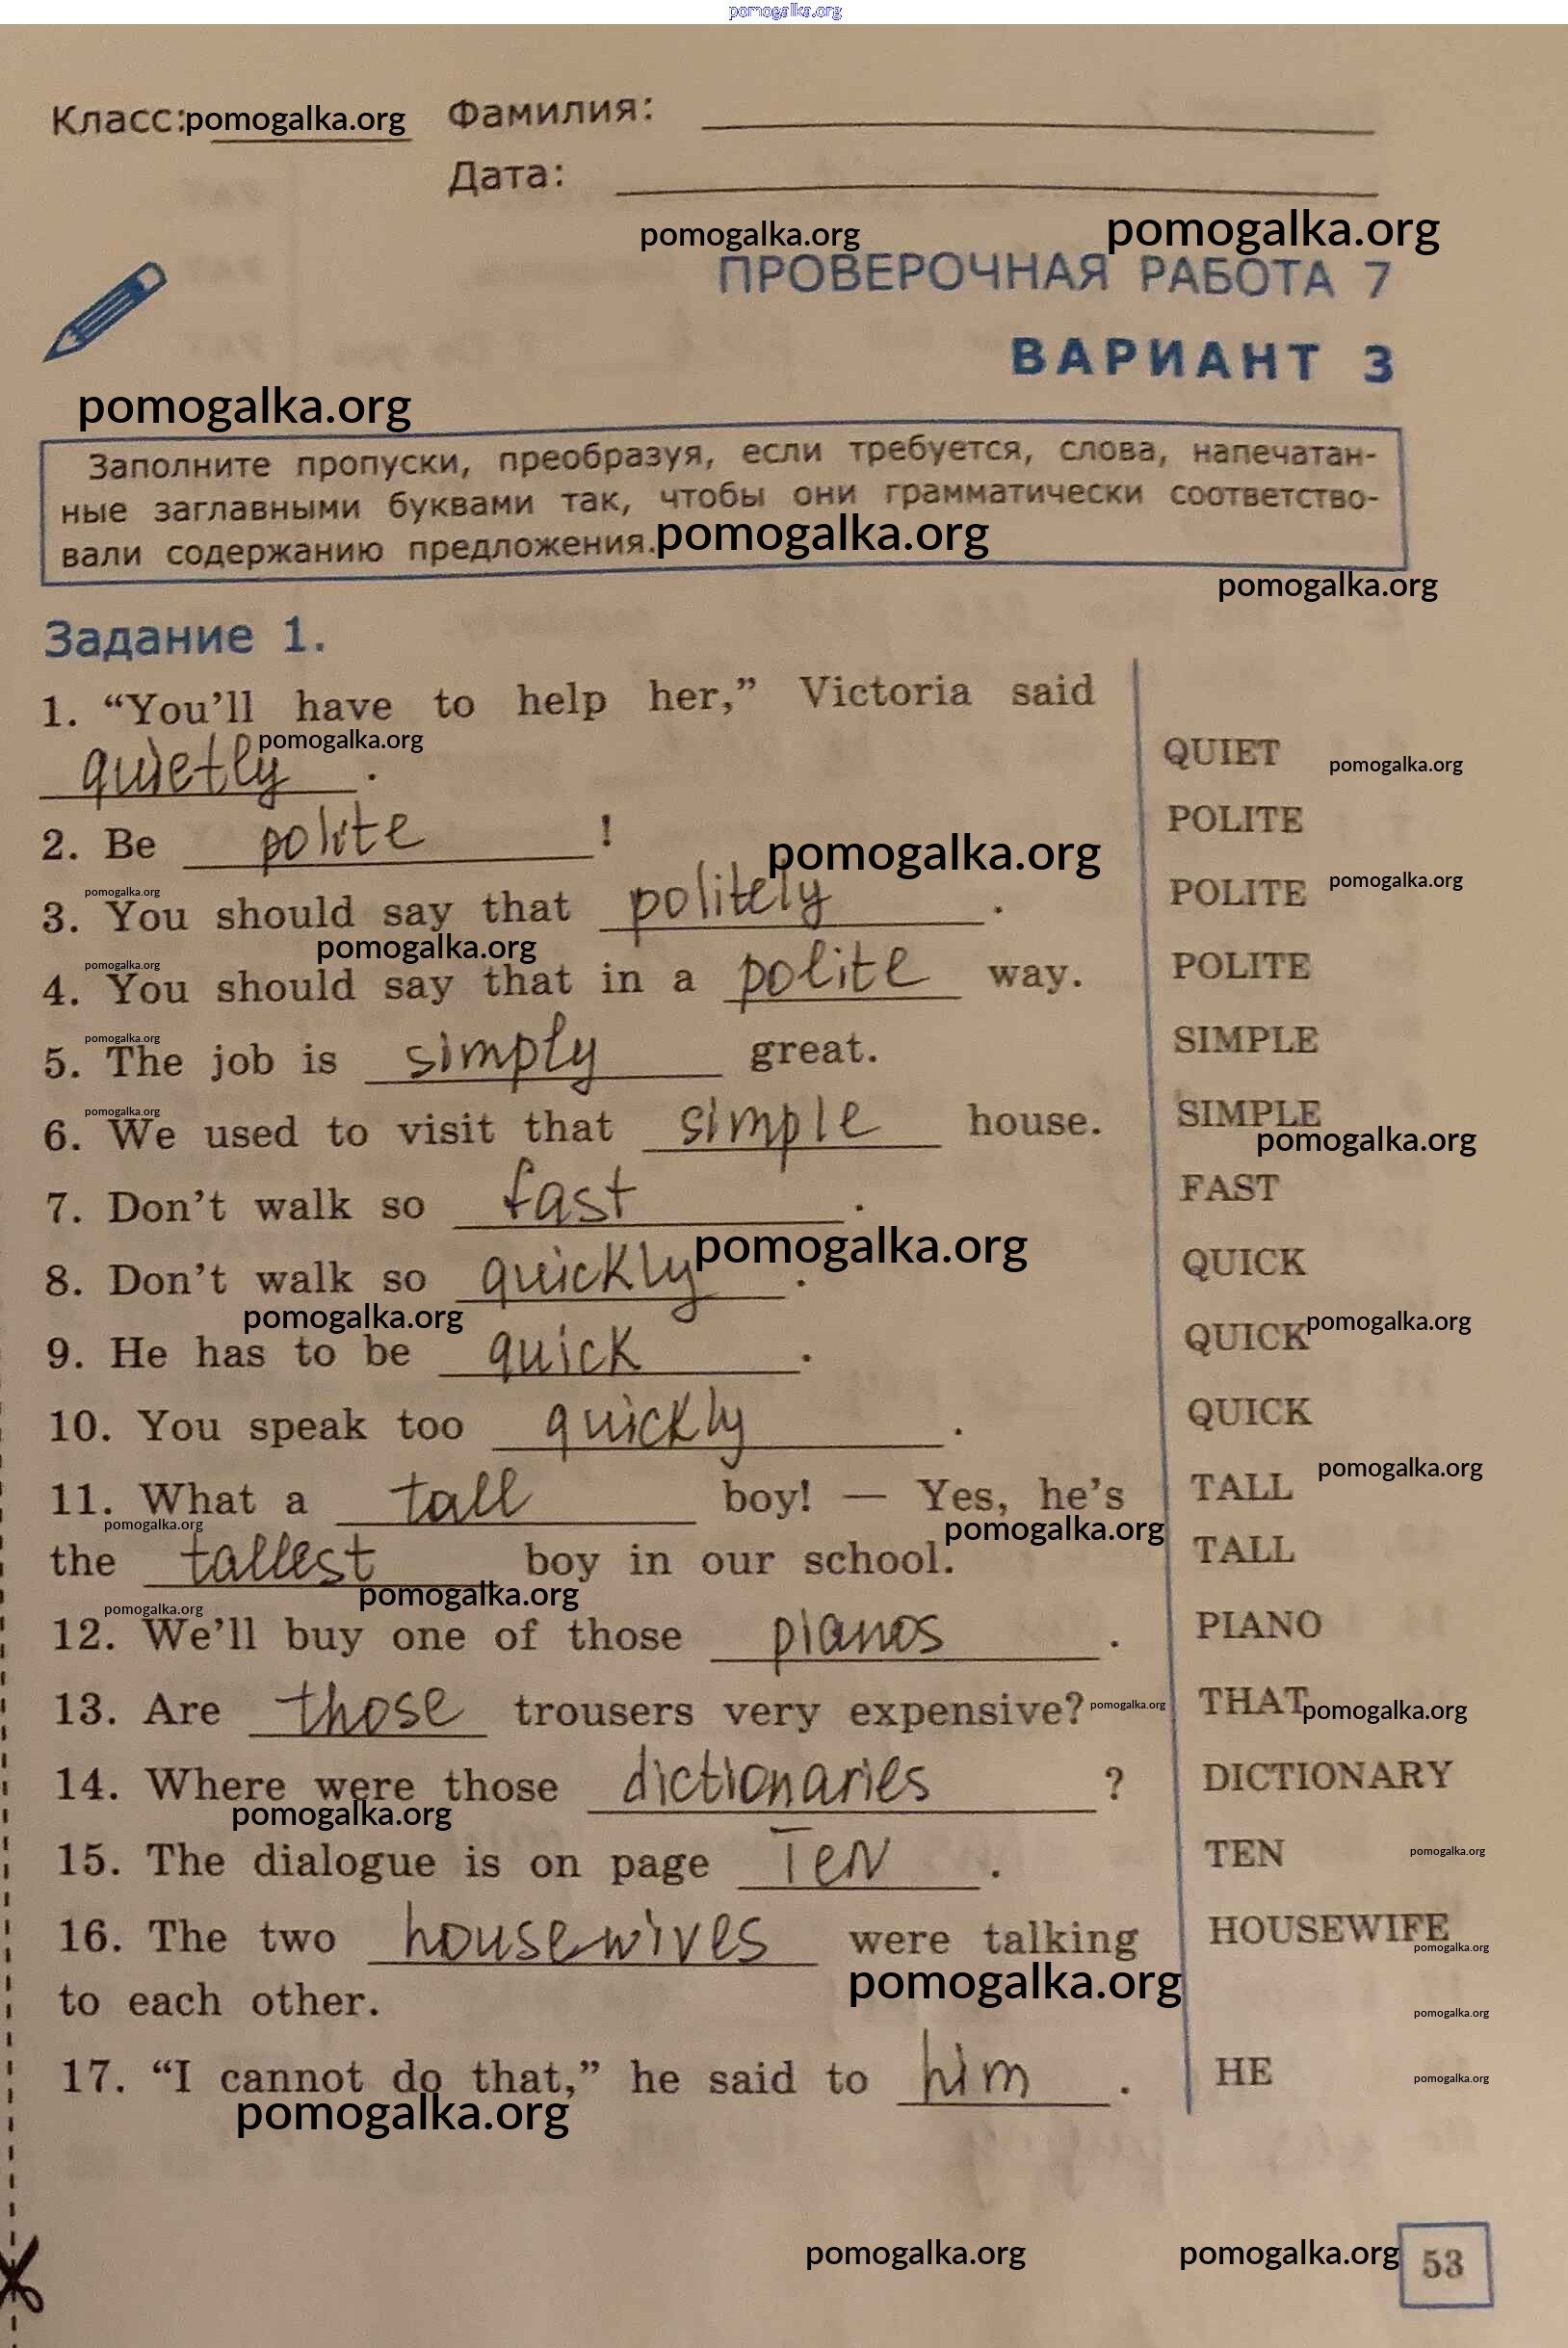 pomogalka.org
Класс: pomogalka.org Фамилия:
Дата:
pomogalka.org pomogalka.org
ПРОВЕРОЧНАЯ РАБОТА 7
ВАРИАНТ 3
pomogalka.org
Заполните пропуски, преобразуя, если требуется, слова, напечатан-
ные заглавными буквами так, чтобы они грамматически соответство-
вали содержанию предложения. pomogalka.org
pomogalka.org
Задание 1.
1. “You’ll have to help her,” Victoria said
quietly . pomogalka.org QUIET pomogalka.org
2. Be polite ! POLITE
pomogalka.org
pomogalka.org pomogalka.org
3. You should say that politely . POLITE
pomogalka.org
pomogalka.org
4. You should say that in a polite way. POLITE
pomogalka.org
5. The job is simply great. SIMPLE
pomogalka.org
6. We used to visit that simple house. SIMPLE
pomogalka.org
7. Don’t walk so fast . FAST
pomogalka.org
8. Don’t walk so quickly . QUICK
pomogalka.org pomogalka.org
9. He has to be quick . QUICK
10. You speak too quickly . QUICK
pomogalka.org
11. What a tall boy! — Yes, he’s TALL
pomogalka.org pomogalka.org
the tallest boy in our school. TALL
pomogalka.org
pomogalka.org
12. We’ll buy one of those pianos . PIANO
13. Are those trousers very expensive? pomogalka.org THAT pomogalka.org
14. Where were those dictionaries ? DICTIONARY
pomogalka.org
15. The dialogue is on page Ten . TEN pomogalka.org
16. The two housewives were talking HOUSEWIFE
pomogalka.org
pomogalka.org
to each other.
pomogalka.org
17. “I cannot do that,” he said to him . HE pomogalka.org
pomogalka.org
pomogalka.org pomogalka.org 53